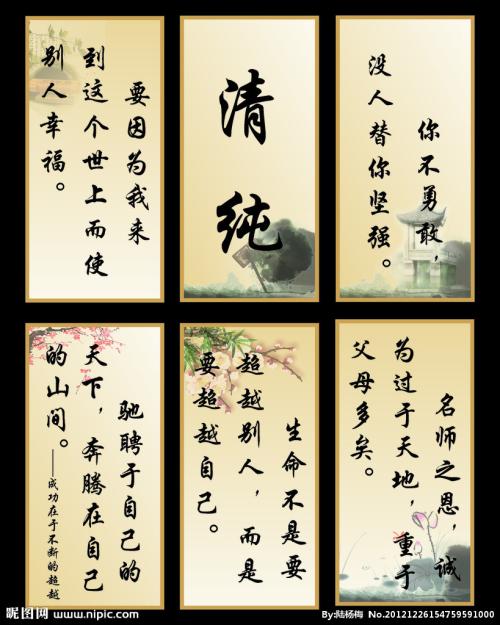 要因为我来
到这个世上而使
别人幸福。
清纯
你不勇敢，
没人替你坚强。
驰聘于自己的
天下，奔腾在自己
的山间。
——成功在于不断的超越
生命不是要
超越别人，而是
要超越自己。
名师之恩，诚
为过于天地，重于
父母多矣。
昵图网 www.nipic.com
By:陆杨梅 No.20121226154759591000